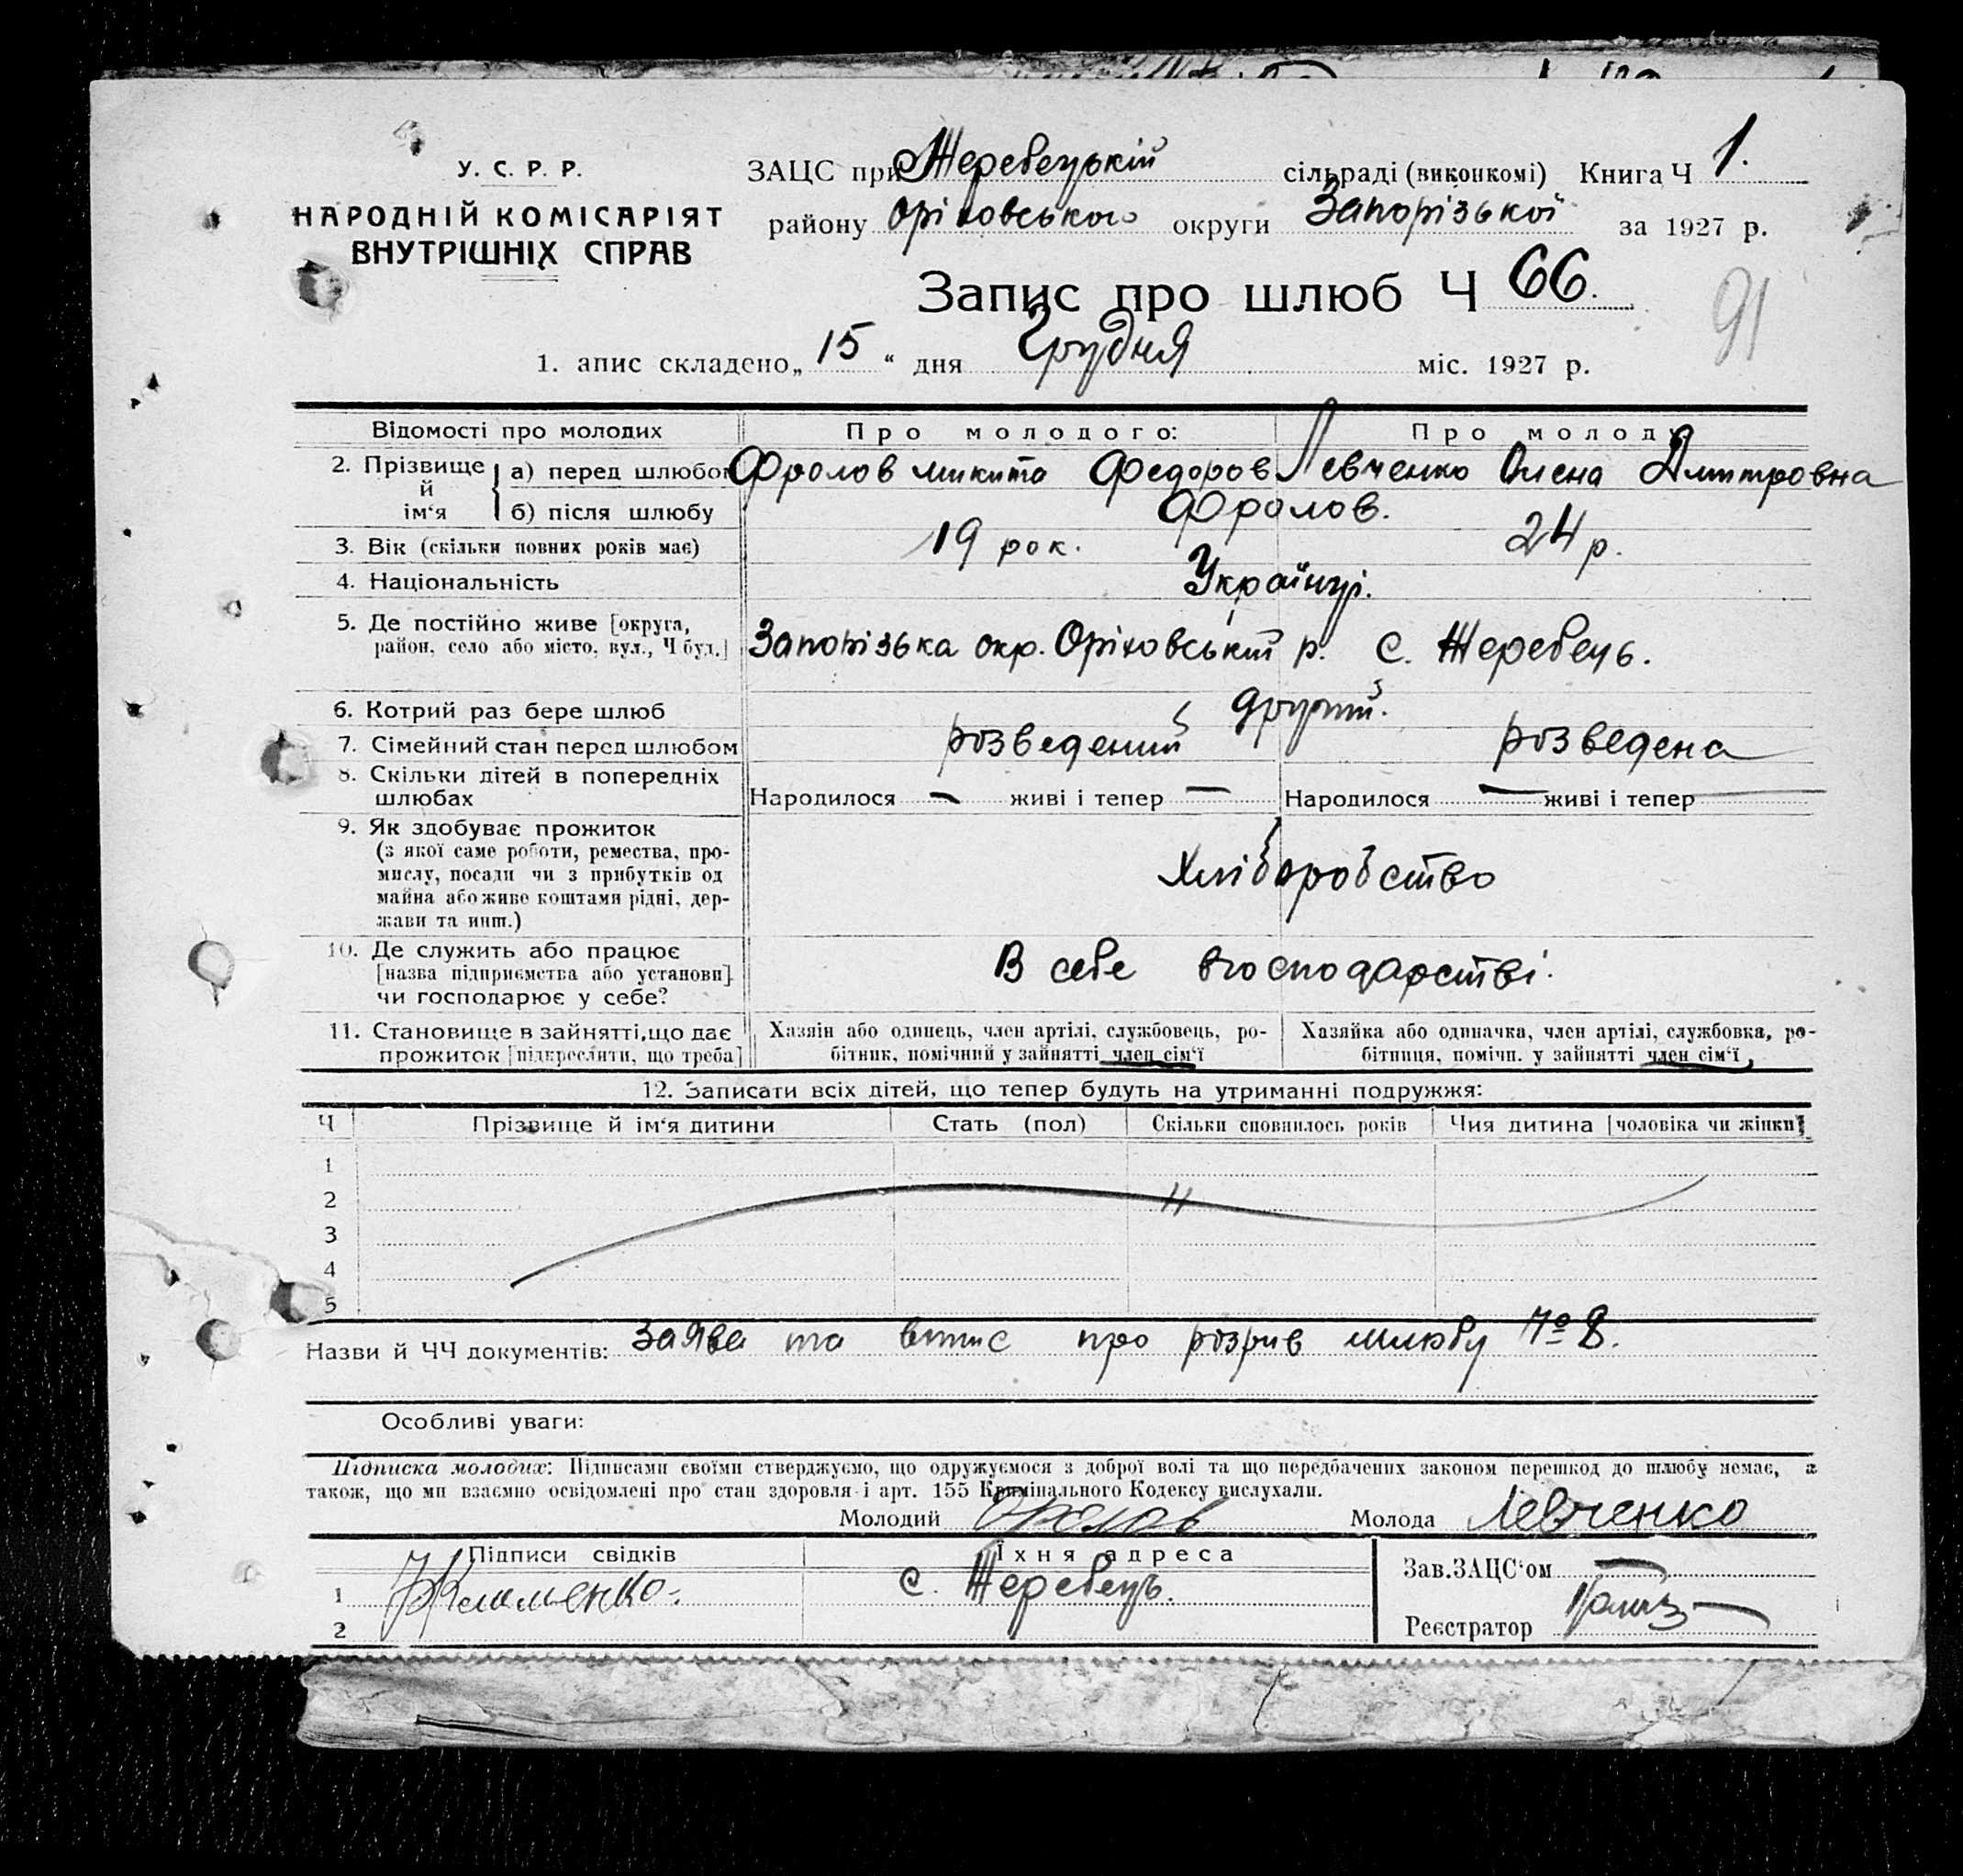 У. С. Р. Р.
НАРОДНІЙ КОМІСАРІЯТ
ВНУТРІШНІХ СПРАВ
ЗАЦС при Жеребецькій сільраді (виконкомі) Книга Ч 1.
району Оріховського округи Запорізької за 1927 р.
Запис про шлюб Ч 66.
91
1. апис складено „ 15 “ дня Грудня міс. 1927 р.
Відомості про молодих Про молодого: Про молоду
2. Прізвище й ім‘я а) перед шлюбом Фролов Микита Федоров Левченко Олена Дмитровна
б) після шлюбу Фролов.
3. Вік (скільки повних років має) 19 рок. 24 р.
4. Національність Українці.
5. Де постійно живе [округа,
район, село або місто, вул., Ч буд.] Запорізька окр. Оріховський р. с. Жеребець.
6. Котрий раз бере шлюб другий.
7. Сімейний стан перед шлюбом розведений розведена
8. Скільки дітей в попередніх
шлюбах Народилося — живі і тепер — Народилося — живі і тепер —
9. Як здобуває прожиток
(з якої саме роботи, ремества, про-
мислу, посади чи з прибутків од
майна або живе коштами рідні, дер-
жави та инш.)
Хліборобство
10. Де служить або працює
[назва підприємства або установи]
чи господарює у себе?
В себе вгосподарстві.
11. Становище в зайнятті, що дає
прожиток [підкреслити, що треба]
Хазяін або одинець, член артілі, службовець, ро-
бітник, помічний у зайнятті член сім‘ї
Хазяйка або одиначка, член артілі, службовка, ро-
бітниця, помічн. у зайнятті член сім‘ї
12. Записати всіх дітей, що тепер будуть на утриманні подружжя:
Ч Прізвище й ім‘я дитини Стать (пол) Скільки сповнилось років Чия дитина [чоловіка чи жінки]
1
2
3
4
5
Назви й ЧЧ документів: Заява та витис про розрив шлюбу № 8.
Особливі уваги:
Підписка молодих: Підписами своїми стверджуємо, що одружуємося з доброї волі та що передбачених законом перешкод до шлюбу немає, а
також, що ми взаємно освідомлені про стан здоровля і арт. 155 Кримінального Кодексу вислухали.
Молодий Фролов Молода Левченко
Підписи свідків Їхня адреса
1 Клименко с. Жеребець.
2
Зав.ЗАЦС‘ом —
Реєстратор